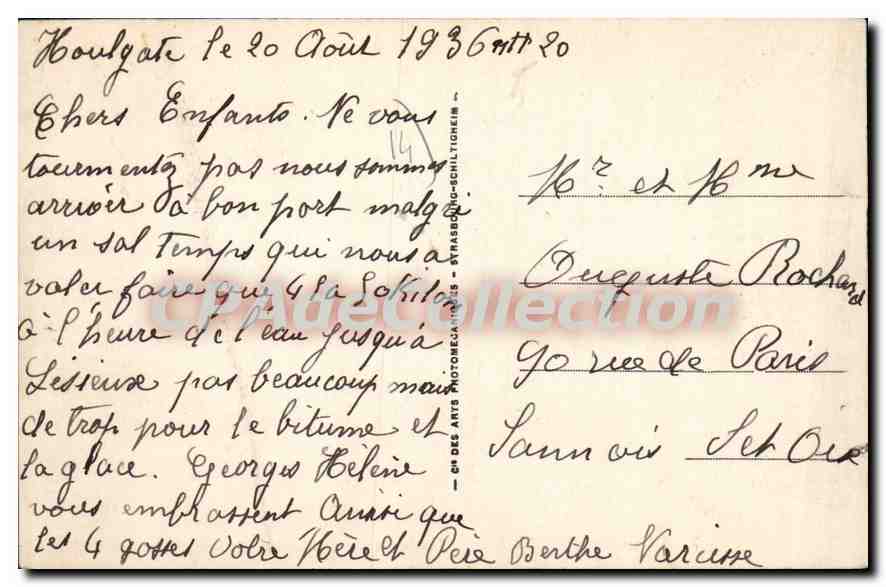 Houlgate le 20 Août 1936 20
Chers Enfants. Ne vous
14
tourmentez pas nous sommes
arrivér à bon port malgré
un sal temps qui nous a
valu faire que 45 à 50 Kilom
à l'heure de l'eau jusqu'à
Lisieux pas beaucoup mais
de trop pour le bitume et
la glace. Georges Hélène
vous embrassent Ainsi que
les 4 gosses Votre Mère et Père Berthe Narcisse
— Cie DES ARTS PHOTOMECANIQUES - STRASBOURG-SCHILTIGHEIM —
Mr et Mme
Auguste Rochard
90 rue de Paris
Sannois S et Oise
CPAdeCollection.com